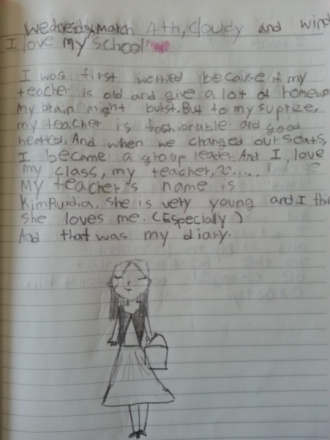 Wednesday, March 4th, cloudy and wind
I love my school
I was first worried because if my
teacher is old and give a lot of homew
My brain might burst. But to my suprize,
my teacher is and good
herted. And when we changed our seats,
I became a group leader. And I love
my class, my teacher,
My teacher's name is
Kim . She is very young and I th
She loves me. (Especially)
And that was my diary.